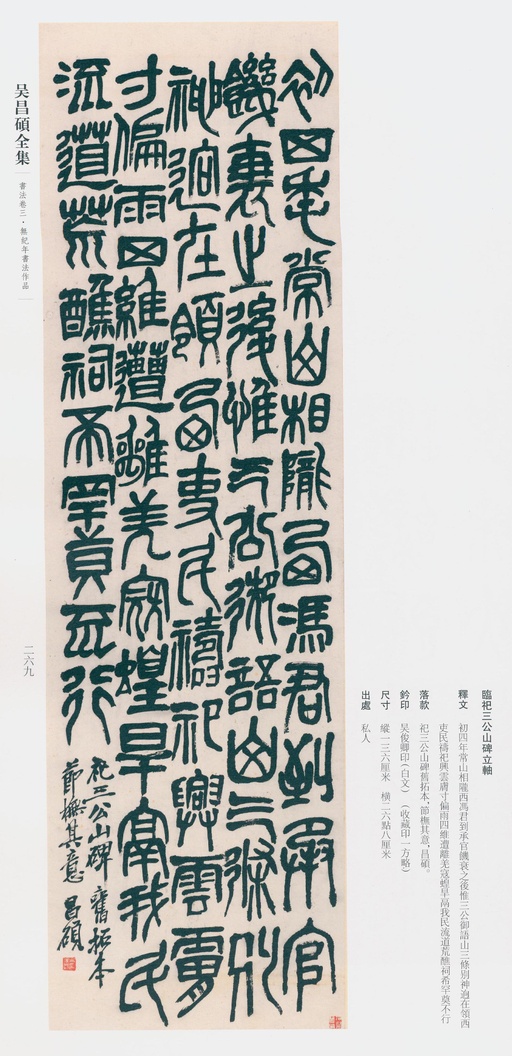 臨祀三公山碑立軸
釋文 初四年常山相隴西馮君到承官饑衰之後惟三公御語山三條別神逈在領西
吏民禱祀興雲膚寸偏雨四維遭離羌寇蝗旱鬲我民流道荒醮祠希罕莫不行
落款 祀三公山碑舊拓本,節橅其意,昌碩。
鈐印 吴俊卿印(白文)(收藏印一方略)
尺寸 縱一三六厘米 橫三六點八厘米
出處 私人
初四年常山相隴西馮君到承官
饑衰之後惟三公御語山三條別
神逈在領西吏民禱祀興雲膚
寸偏雨四維遭離羌寇蝗旱鬲我民
流道荒醮祠希罕奠不行
祀三公山碑舊拓本
節橅其意 昌碩
吴昌碩全集
書法卷三·無紀年書法作品
二六九